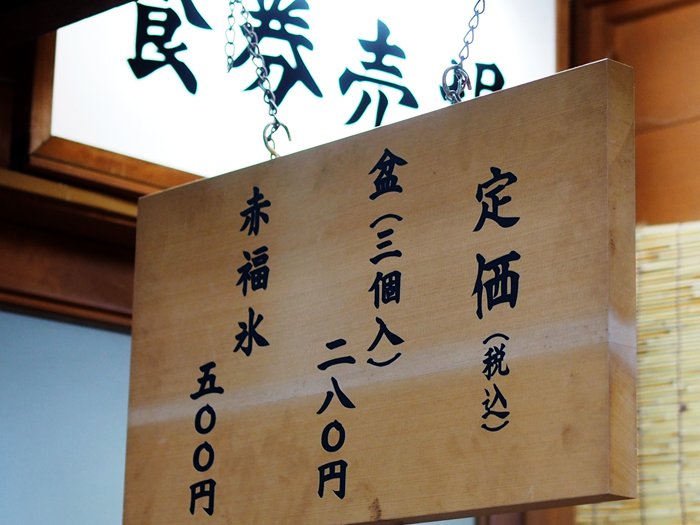 食券売
定価(税込)
盆(三個入)
二八〇円
赤福氷
五〇〇円